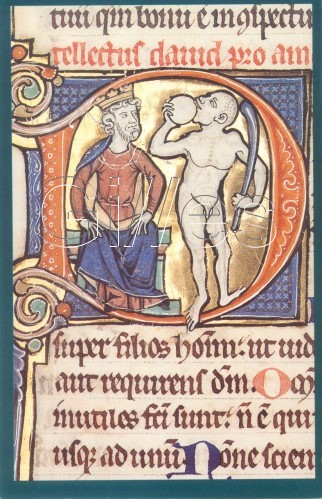 tuū qm̄ bonū ē in ꝯspectu
tellectus dauid pro am
D
super filios hoīm: ut uid
aut requirens dm̄. Om̄
inutiles fc̄i sunt: n̄ ē qui
usq; ad unū. Nōne scien